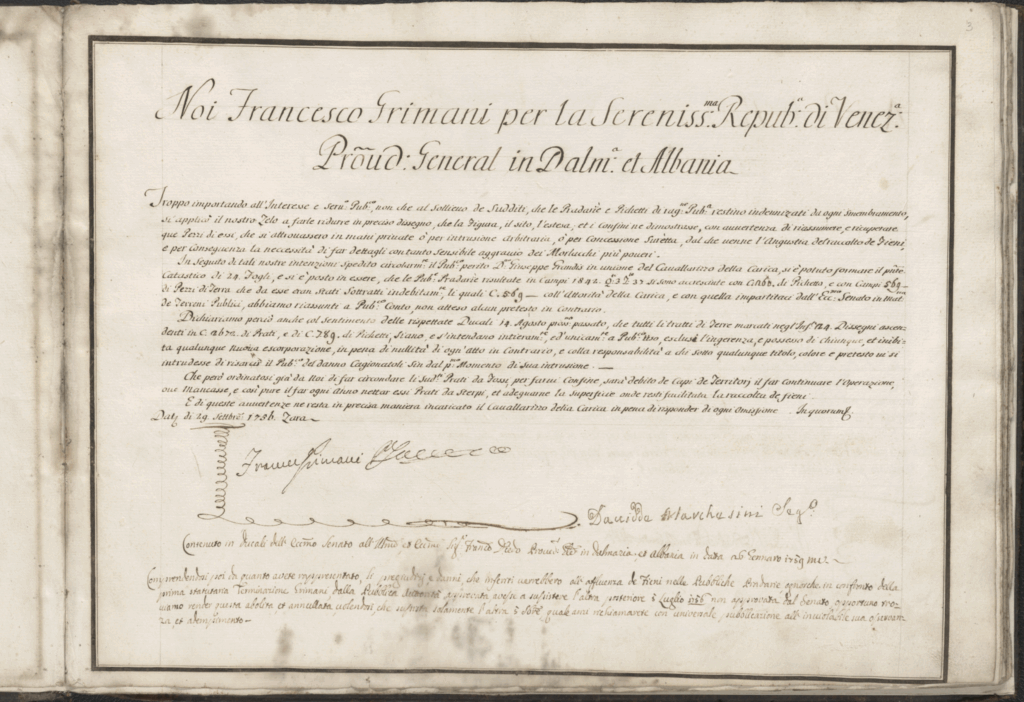 3
Noi Francesco Grimani per la Sereniss:ma Repub:a di Venez:a
Prou͞d: General in Dalm:a et Albania
Troppo importando all'Interesse e seru:o Pub:o, non che al Sollieuo de Sudditi, che le Pradarie e Pichetti di rag:n Pub:a restino indennizati da ogni Smembramento,
si applicò il nostro Zelo a farle ridure in preciso dissegno, che la Figura, il sito, l'estesa, et i Confini ne dimostrasse, con auuertenza di riassumere, e ricuperare
que Pezzi di essi, che si attrouassero in mani priuate ò per intrusione arbitraria, ò per Concessione Suretta, dal che uenne l'Angustia del raccolto de Fieni,
e per Conseguenza la necessità di far dettagli con tanto Sensibile aggrauio dei Morlacchi più poueri.
In Seguito di tali nostre intenzioni Spedito circolarm:e il Pub:o perito D:n Giuseppe Grandis in unione del Cauallarizzo della Carica, si è potuto formare il pñte
Catastico di 24 Fogli, e si è posto in essere, che le Pub:e Pradarie risultate in Campi 1892. Q: 3. 37 si sono accresciute con C. 1268. di Pichetto, e con Campi 569
di Pezzi di Terra che da esse eran stati Sottratti indebitam:e, li quali C. 569 — coll'Autorità della Carica, e con quella impartitaci dall'Ecc:mo Senato in mat:a
de Terreni Publici, abbiamo riassunti a Pub:o Conto, non atteso alcun pretesto in Contrario.
Dichiariamo perciò anche col sentimento delle rispettate Ducali 14. Agosto pros:o passato, che tutti li tratti di Terre marcati negl'Inf:ti 24. Dissegni ascen-
denti in C. 2672. di Prati, e di C. 789. di Pichetti, Siano, e s'intendano intieram:e, ed unicam:e a Pub:o Uso, esclusa l'ingerenza, e possesso di Chiunque, et inibi-
ta qualunque nuoua escorporazione, in pena di nullità di ogn'atto in Contrario, e colla responsabilità a chi sotto qualunque titolo, colore e pretesto in si
intrudesse di risarcir il Pub:o del danno Cagionatoli Sin dal p:mo Momento di Sua intrusione. —
Che però ordinatosi già da Noi di far circondare li Sud:ti Prati da Fossi per farui Confine, sarà debito de Capi de Territorj il far continuare l'Operazione,
oue Mancasse, e così pure il far ogni anno nettar essi Prati da Sterpi, et adeguarne la superficie onde resti facilitata la raccolta de fieni.
E di queste auuertenze ne resta in precisa maniera incaricato il Cauallarizzo della Carica in pena di risponder di ogni omissione. In quorum
Dat: di 29 Settbrē: 1756. Zara
Franco Grimani
Dauidde Marchesini Seg:o
Contenuto in Ducali dell'Eccmo Senato all'Illmo et Eccmo Sig:r Franc:o Diedo Prou:r Gñal in Dalmazia et Albania in data 26 Gennaro 1759 M.V.
Comprendendosi poi da quanto avete rappresentato, li pregiudizj e danni, che inferti sarebbero all'affluenza de Fieni nelle Pubbliche
prima statuitata Terminazione Grimani dalla Pubblica Autorità approvata avesse a sussistere l'altra posteriore 5 Luglio 1756 non approvata dal Senato, opportuno tro-
viamo render questa abolita et annullata volendosi che sussista solamente l'altra
za et adempimento.